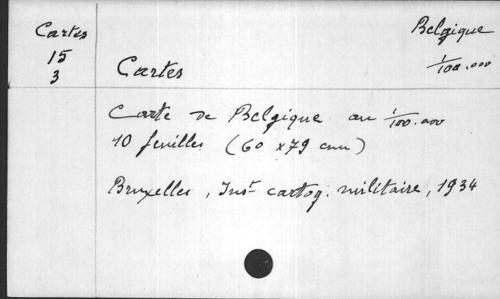 Cartes
15
3
Belgique
1/100.000
Cartes
Carte de Belgique au 1/100.000
10 feuilles (60 x 79 cm)
Bruxelles, Inst cartog. militaire, 1934